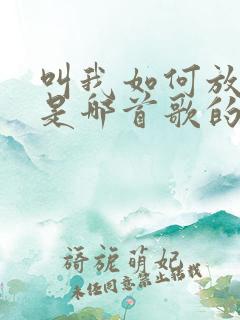 叫我如何放
是那首歌的
旖旎萌妃
未经同意禁止转载